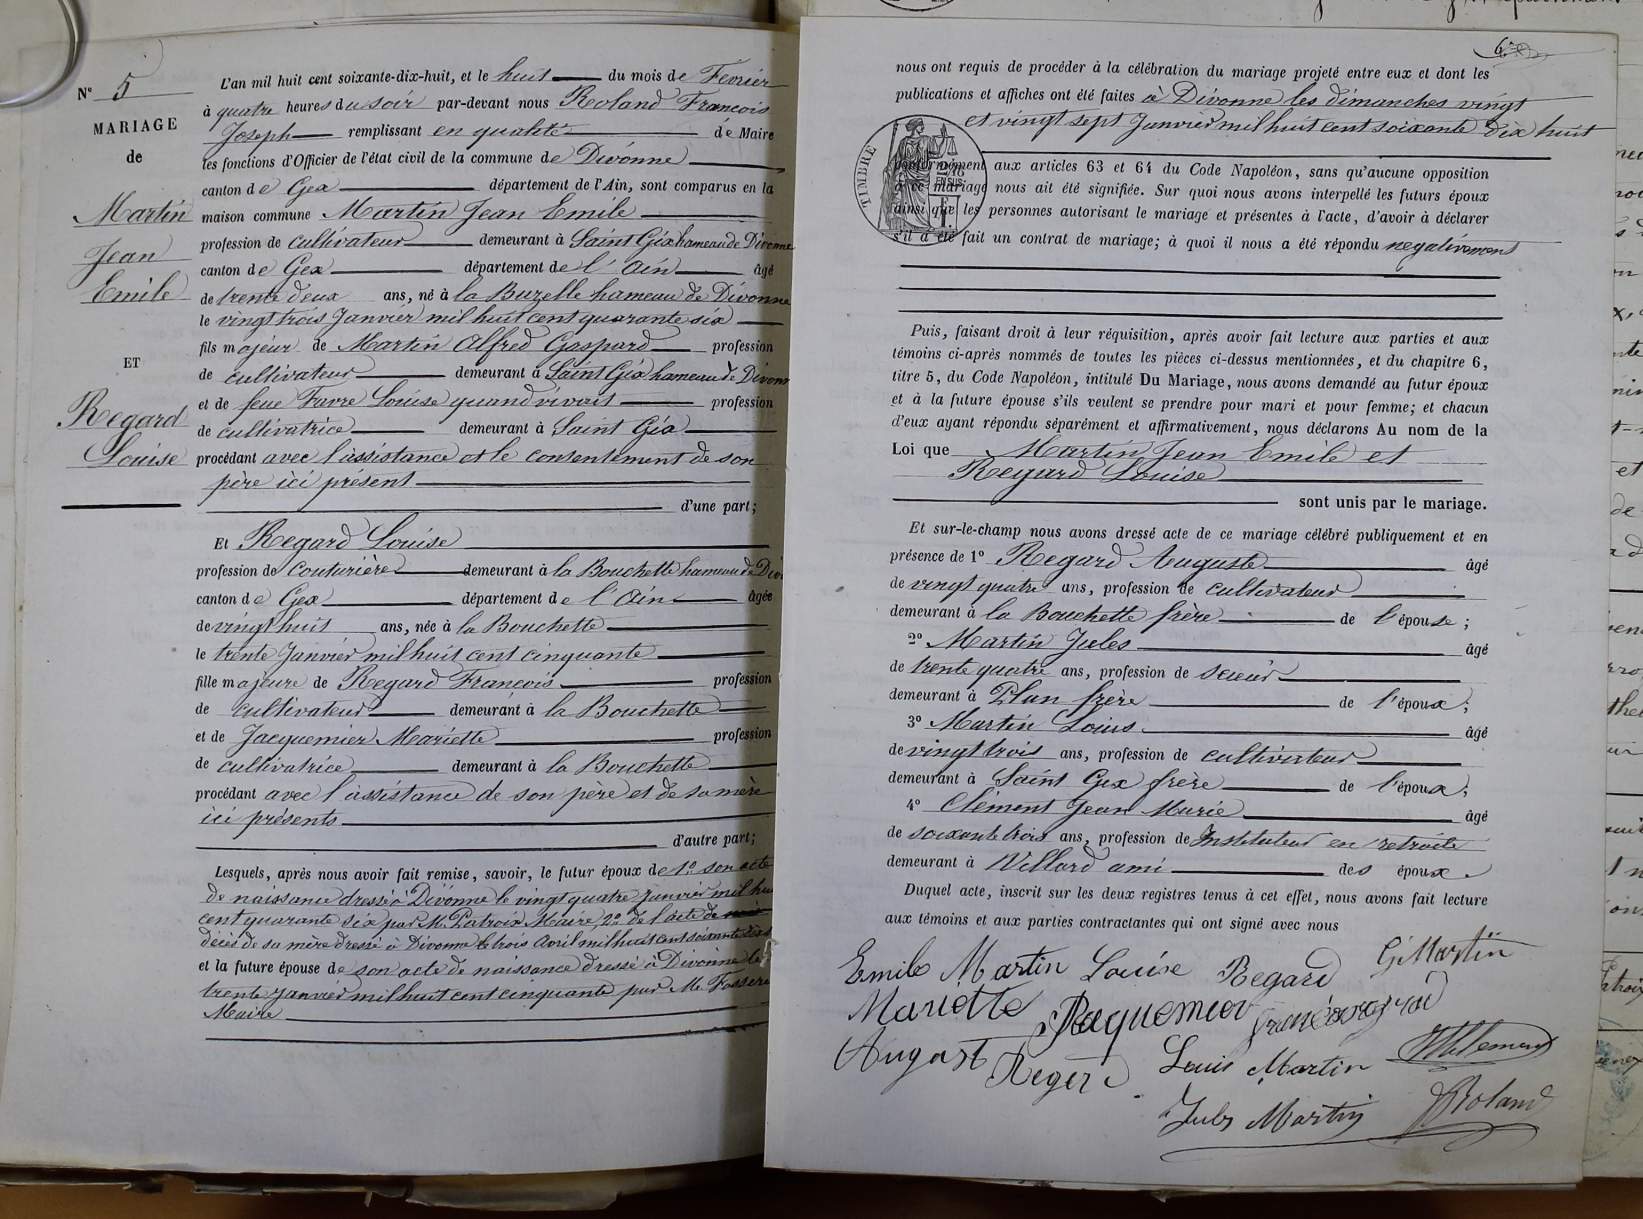 N° 5
MARIAGE
de
Martin
Jean
Emile
ET
Regard
Louise
L'an mil huit cent soixante-dix-huit, et le huit du mois de Fevrier
à quatre heures du soir par-devant nous Roland François
Joseph remplissant en qualité de Maire
les fonctions d'Officier de l'état civil de la commune de Divonne
canton de Gex département de l'Ain, sont comparus en la
maison commune Martin Jean Emile
profession de cultivateur demeurant à Saint Gix hameau de Divonne
canton de Gex département de l'Ain âgé
de trente deux ans, né à la Buzelle hameau de Divonne
le vingt trois Janvier mil huit cent quarante six
fils majeur de Martin Alfred Gaspard profession
de cultivateur demeurant à Saint Gix hameau de Divonn
et de feue Favre Louise quand vivait profession
de cultivatrice demeurant à Saint Gix
procédant avec l'assistance et le consentement de son
père ici présent
d'une part;
Et Regard Louise
profession de couturière demeurant à la Bouchette hameau de Div
canton de Gex département de l'Ain âgée
de vingt huit ans, née à la Bouchette
le trente Janvier mil huit cent cinquante
fille majeure de Regard François profession
de cultivateur demeurant à la Bouchette
et de Jacquemier Mariette profession
de cultivatrice demeurant à la Bouchette
procédant avec l'assistance de son père et de sa mère
ici présents
d'autre part;
Lesquels, après nous avoir fait remise, savoir, le futur époux de 1° son acte
de naissance dressé à Divonne le vingt quatre Janvier mil hui
cent quarante six par M. Patroix Maire, 2° de l'acte de
décès de sa mère dressé à Divonne le trois Avril mil huit cent soixante dix
et la future épouse de son acte de naissance dressé à Divonne le
trente Janvier mil huit cent cinquante par M.
Maire
6
nous ont requis de procéder à la célébration du mariage projeté entre eux et dont les
publications et affiches ont été faites à Divonne les dimanches vingt
et vingt sept Janvier mil huit cent soixante dix huit
TIMBRE
EN SUS
conformément aux articles 63 et 64 du Code Napoléon, sans qu'aucune opposition
à ce mariage nous ait été signifiée. Sur quoi nous avons interpellé les futurs époux
ainsi que les personnes autorisant le mariage et présentes à l'acte, d'avoir à déclarer
s'il a été fait un contrat de mariage; à quoi il nous a été répondu negativement
Puis, faisant droit à leur réquisition, après avoir fait lecture aux parties et aux
témoins ci-après nommés de toutes les pièces ci-dessus mentionnées, et du chapitre 6,
titre 5, du Code Napoléon, intitulé Du Mariage, nous avons demandé au futur époux
et à la future épouse s'ils veulent se prendre pour mari et pour femme; et chacun
d'eux ayant répondu séparément et affirmativement, nous déclarons Au nom de la
Loi que Martin Jean Emile et
Regard Louise
sont unis par le mariage.
Et sur-le-champ nous avons dressé acte de ce mariage célébré publiquement et en
présence de 1° Regard Auguste âgé
de vingt quatre ans, profession de cultivateur
demeurant à la Bouchette frère de l'épouse;
2° Martin Jules âgé
de trente quatre ans, profession de scieur
demeurant à Plan frère de l'époux;
3° Martin Louis âgé
de vingt trois ans, profession de cultivateur
demeurant à Saint Gix frère de l'époux;
4° Clément Jean Marie âgé
de soixante trois ans, profession de Instituteur en retraite
demeurant à Villard ami des époux.
Duquel acte, inscrit sur les deux registres tenus à cet effet, nous avons fait lecture
aux témoins et aux parties contractantes qui ont signé avec nous
Emile Martin Louise Regard G Martin
Mariette Jaquemier
August Reger Louis Martin
Jules Martin Roland